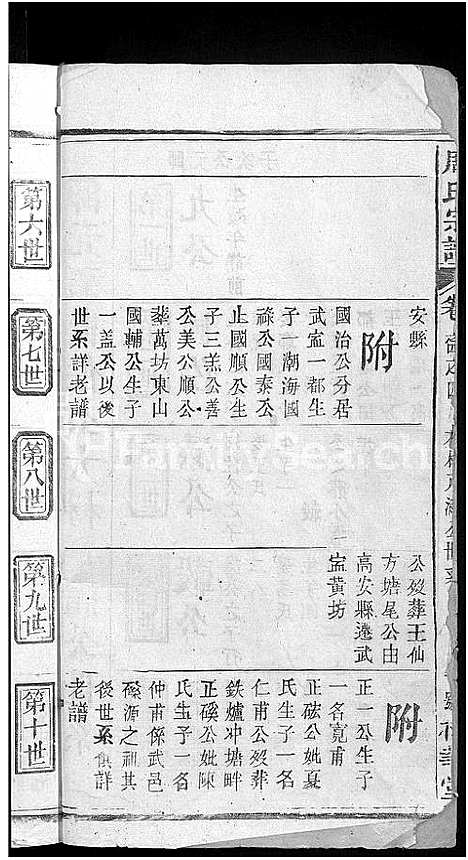 周氏宗譜
卷
安縣
附
國治公分居
武寍一都生
子一潮海國
祿公國泰公
止國順公生
子三羔公善
公美公順公
塟萬坊東山
國輔公生子
一盖公以後
世系詳老譜
公歿葬王仙
方塘尾公由
高安縣遷武
寍黄坊
附
正一公生子
一名寛甫
正硋公妣夏
氏生子一名
仁甫公歿葬
鉄爐冲塘畔
正磎公妣陳
氏生子一名
仲甫係武邑
磎源之祖其
後世系俱詳
老譜
第六世
第七世
第八世
第九世
第十世